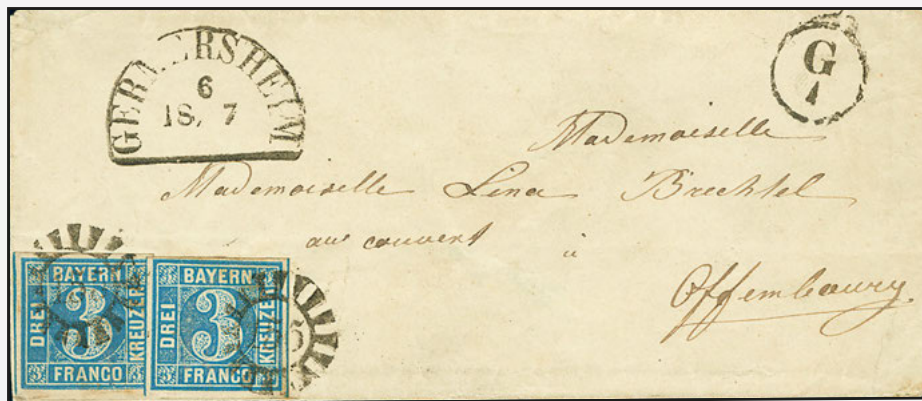 GERMERSHEIM
6
18. 7
G
1
Mademoiselle
Mademoiselle Lina Brechtel
au couvent à
Offembourg.
BAYERN
DREI
3
KREUZER
FRANCO
BAYERN
DREI
3
KREUZER
FRANCO